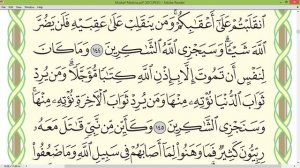 Mushaf Madinah.pdf (SECURED) - Adobe Reader
ٱنقَلَبْتُمْ عَلَىٰٓ أَعْقَٰبِكُمْ وَمَن يَنقَلِبْ عَلَىٰ عَقِبَيْهِ فَلَن يَضُرَّ
ٱللَّهَ شَيْـًٔا وَسَيَجْزِى ٱللَّهُ ٱلشَّٰكِرِينَ ١٤٤ وَمَا كَانَ
لِنَفْسٍ أَن تَمُوتَ إِلَّا بِإِذْنِ ٱللَّهِ كِتَٰبًا مُّؤَجَّلًا وَمَن يُرِدْ
ثَوَابَ ٱلدُّنْيَا نُؤْتِهِۦ مِنْهَا وَمَن يُرِدْ ثَوَابَ ٱلْـَٔاخِرَةِ نُؤْتِهِۦ مِنْهَا
وَسَنَجْزِى ٱلشَّٰكِرِينَ ١٤٥ وَكَأَيِّن مِّن نَّبِىٍّ قَٰتَلَ مَعَهُۥ
رِبِّيُّونَ كَثِيرٌ فَمَا وَهَنُوا۟ لِمَآ أَصَابَهُمْ فِى سَبِيلِ ٱللَّهِ وَمَا ضَعُفُوا۟